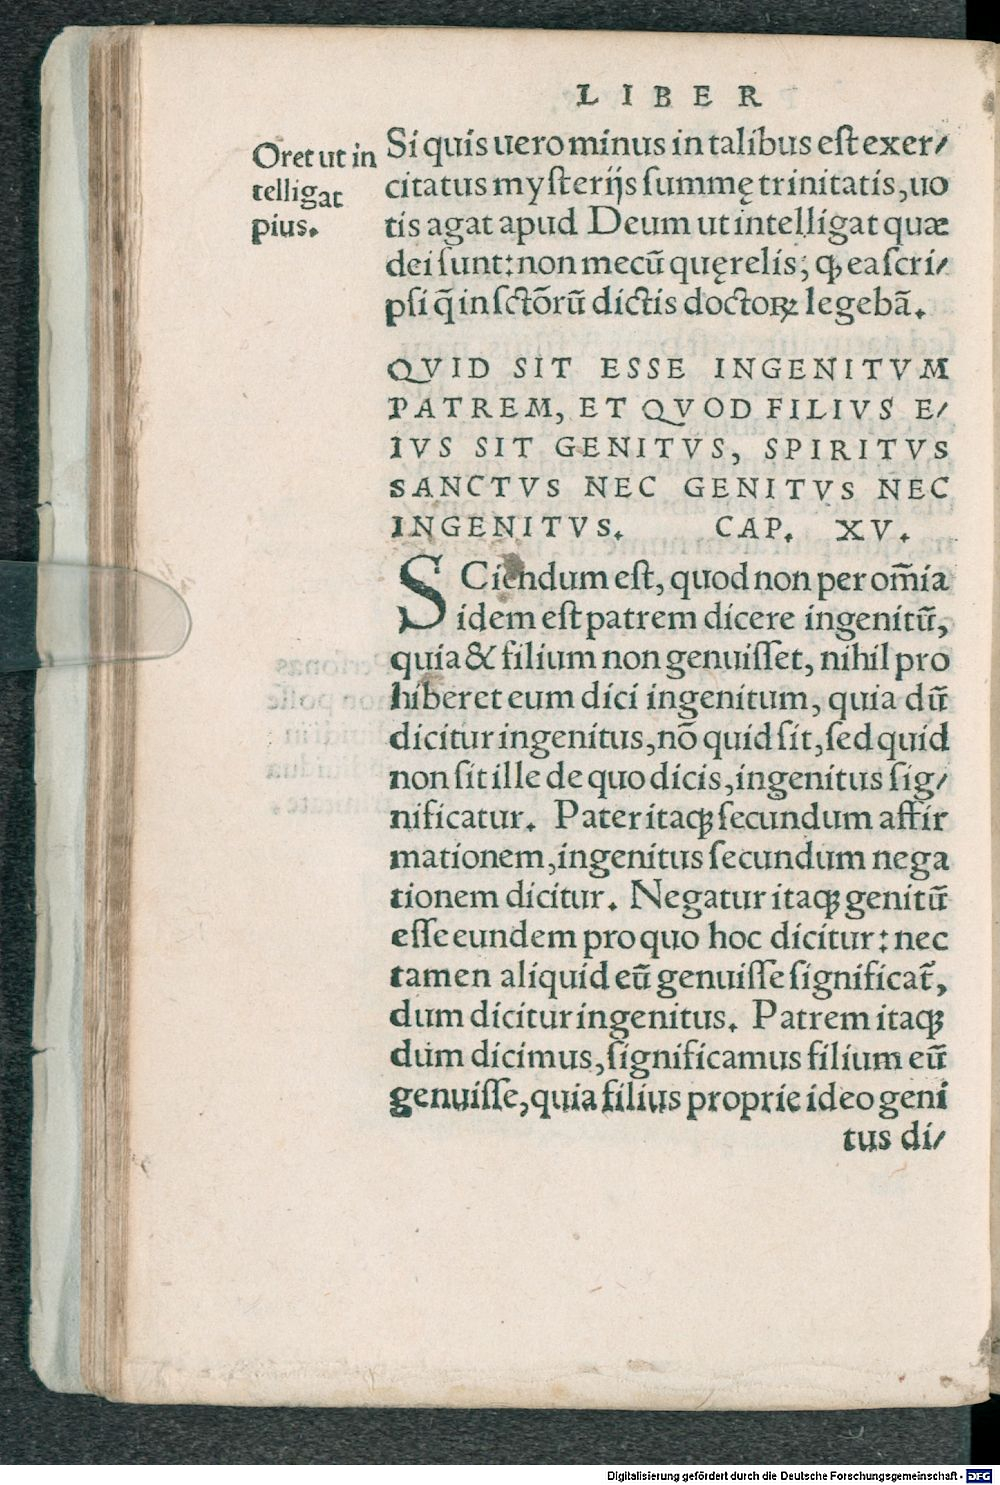 LIBER
Oret ut in
telligat
pius.
Si quis uero minus in talibus est exer/
citatus mysterijs summę trinitatis, uo
tis agat apud Deum ut intelligat quæ
dei sunt: non mecū quęrelis, ꝙ ea scri/
psi q̄ in sctōrū dictis doctoꝝ legebā.
QVID SIT ESSE INGENITVM
PATREM, ET QVOD FILIVS E/
IVS SIT GENITVS, SPIRITVS
SANCTVS NEC GENITVS NEC
INGENITVS. CAP. XV.
SCiendum est, quod non per om̄ia
idem est patrem dicere ingenitū,
quia & filium non genuisset, nihil pro
hiberet eum dici ingenitum, quia dū
dicitur ingenitus, nō quid sit, sed quid
non sit ille de quo dicis, ingenitus sig/
nificatur. Pater itaqꝫ secundum affir
mationem, ingenitus secundum nega
tionem dicitur. Negatur itaqꝫ genitū
esse eundem pro quo hoc dicitur: nec
tamen aliquid eū genuisse significat̄,
dum dicitur ingenitus. Patrem itaqꝫ
dum dicimus, significamus filium eū
genuisse, quia filius proprie ideo geni
tus di/
Digitalisierung gefördert durch die Deutsche Forschungsgemeinschaft - DFG